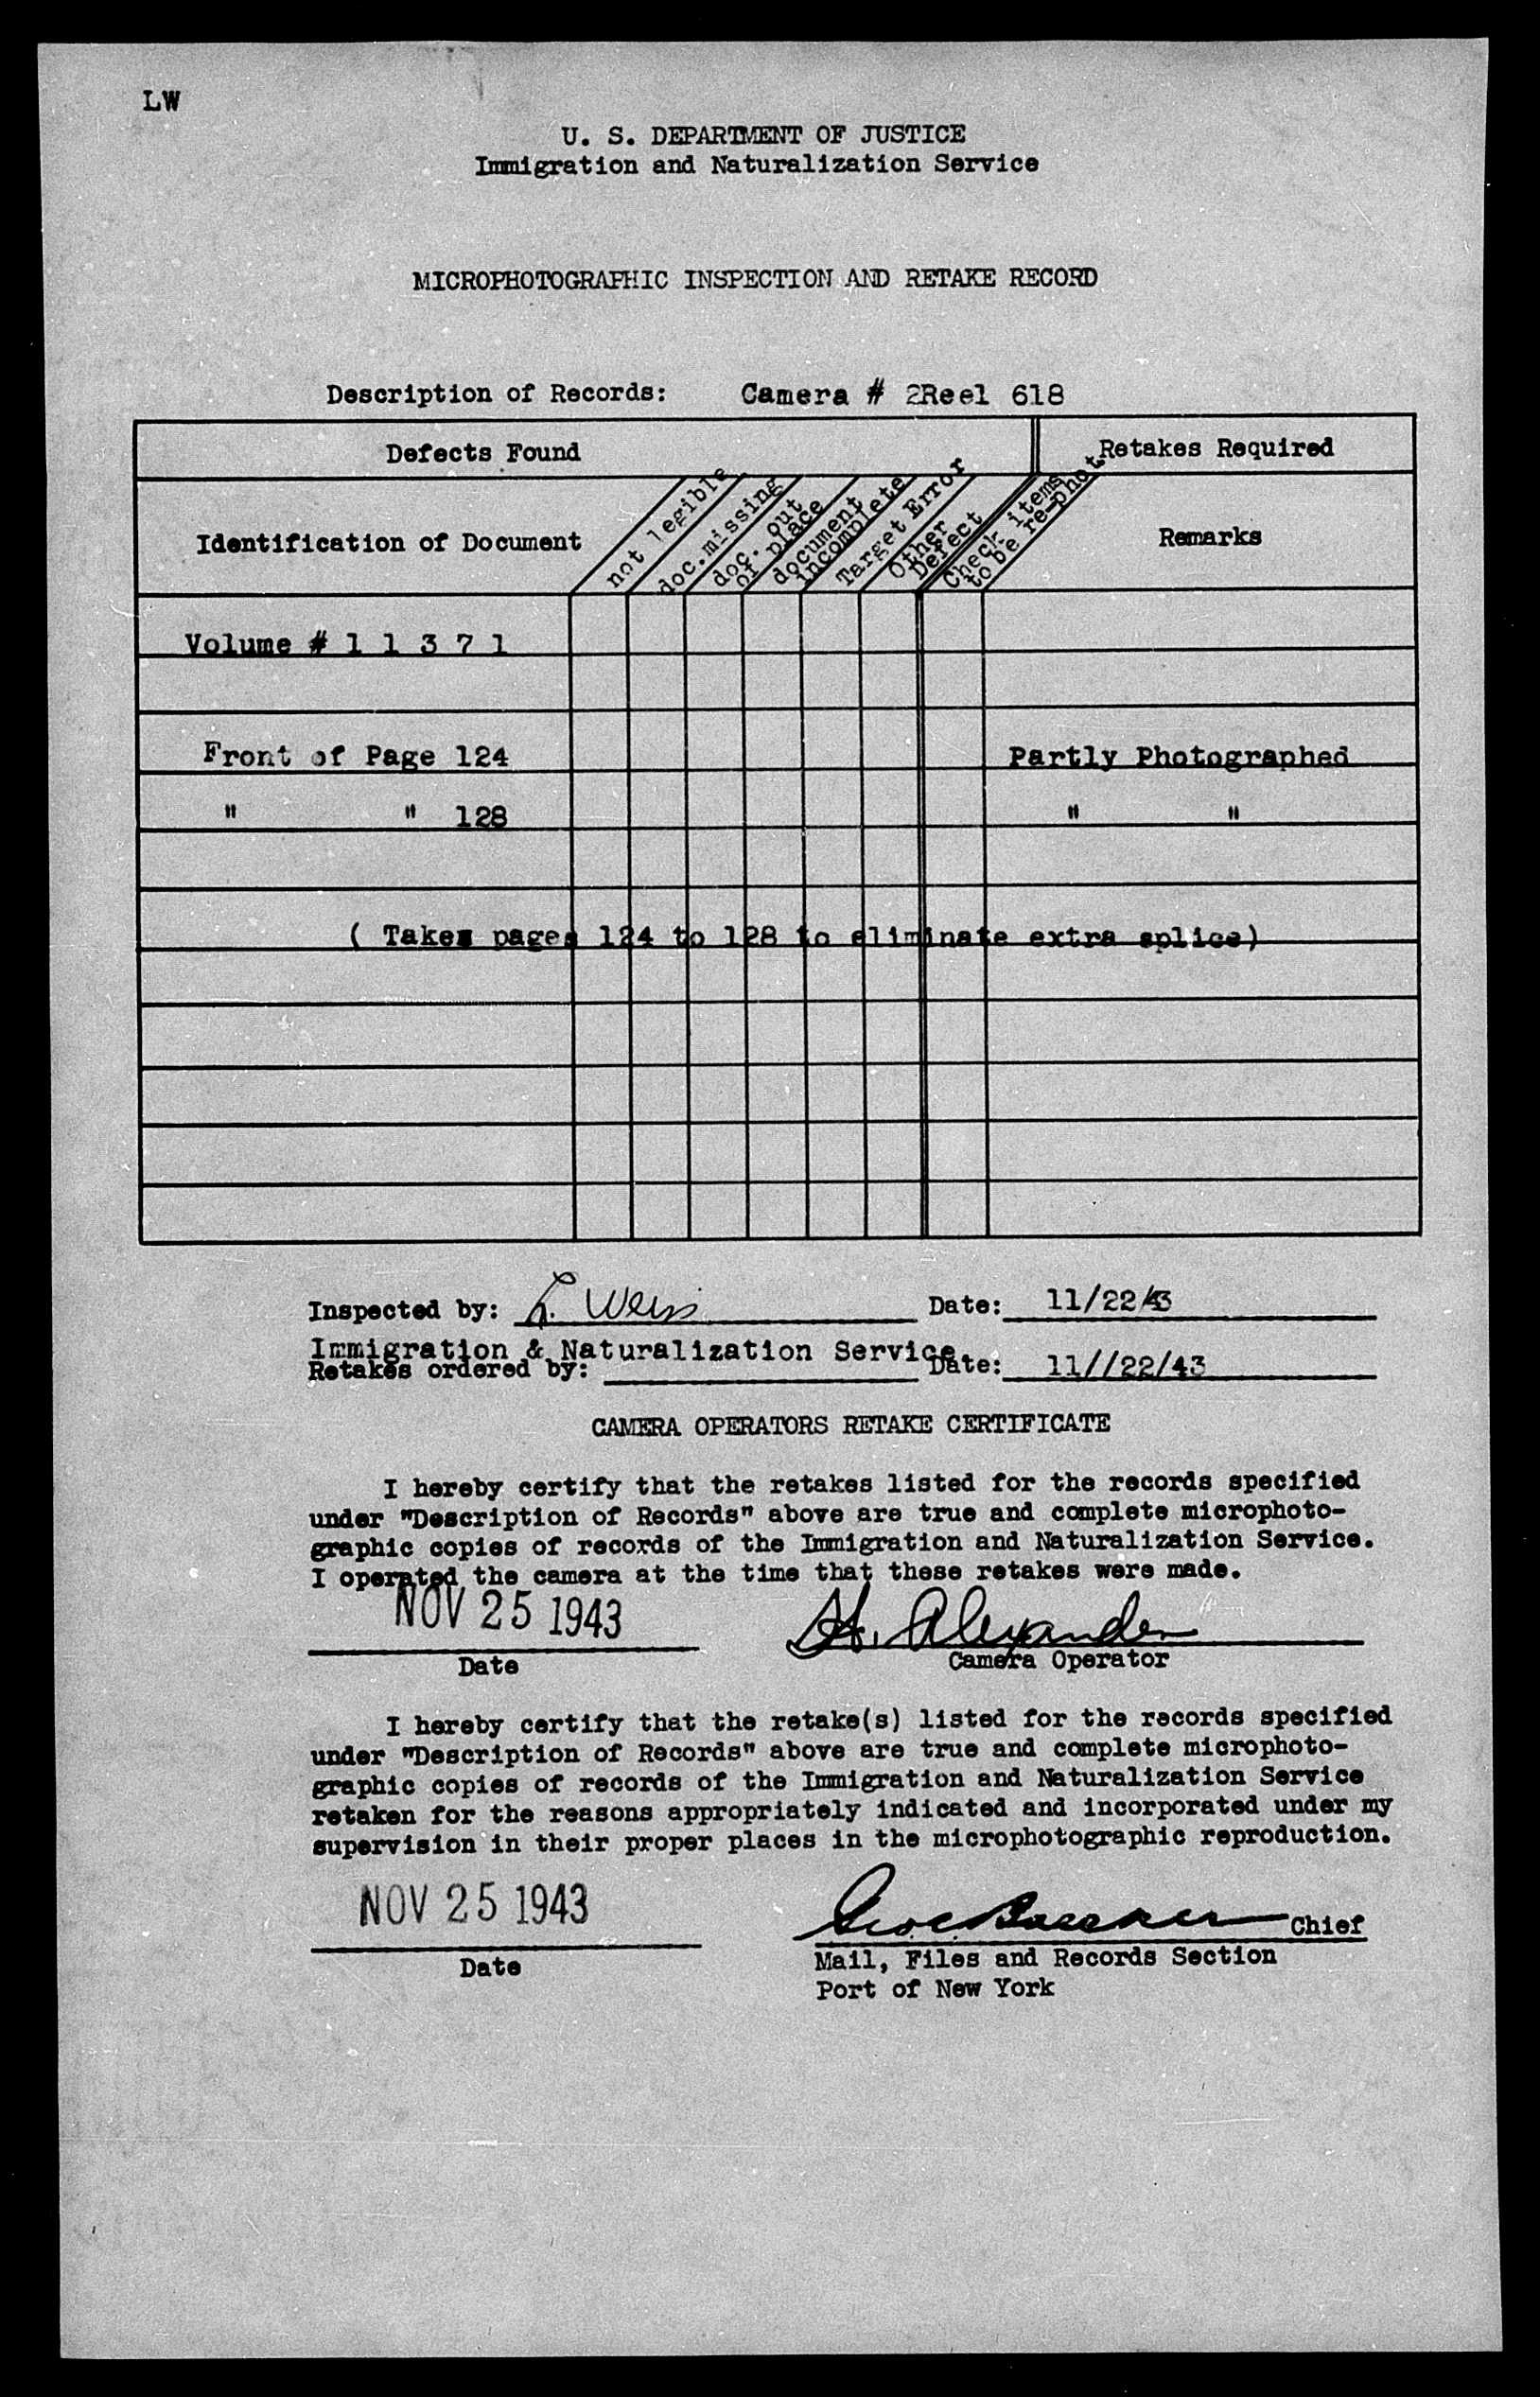 LW
U. S. DEPARTMENT OF JUSTICE
Immigration and Naturalization Service
MICROPHOTOGRAPHIC INSPECTION AND RETAKE RECORD
Description of Records: Camera # 2Reel 618
Defects Found
Retakes Required
Identification of Document
not legible
doc.missing
doc. out of place
document incomplete
Target Error
Other Defect
Check items to be re-phot.
Remarks
Volume # 1 1 3 7 1
Front of Page 124 Partly Photographed
" " 128 " "
( Take pages 124 to 128 to eliminate extra splice)
Inspected by: L. Weiss Date: 11/22/43
Immigration & Naturalization Service
Retakes ordered by: Date: 11//22/43
CAMERA OPERATORS RETAKE CERTIFICATE
I hereby certify that the retakes listed for the records specified
under "Description of Records" above are true and complete microphoto-
graphic copies of records of the Immigration and Naturalization Service.
I operated the camera at the time that these retakes were made.
NOV 25 1943 H. Alexander
Date Camera Operator
I hereby certify that the retake(s) listed for the records specified
under "Description of Records" above are true and complete microphoto-
graphic copies of records of the Immigration and Naturalization Service
retaken for the reasons appropriately indicated and incorporated under my
supervision in their proper places in the microphotographic reproduction.
NOV 25 1943 Chief
Date Mail, Files and Records Section
Port of New York